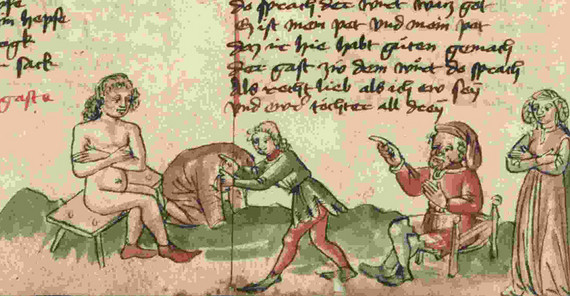 hepfe
sack
gaste
do sprach der wirt
ist mein vnd mein
daz ir hie habt guten gemach
der gast zw dem wirt do sprach
Als recht lieb als ich ew seÿ
vnd ewr tochter all dreÿ